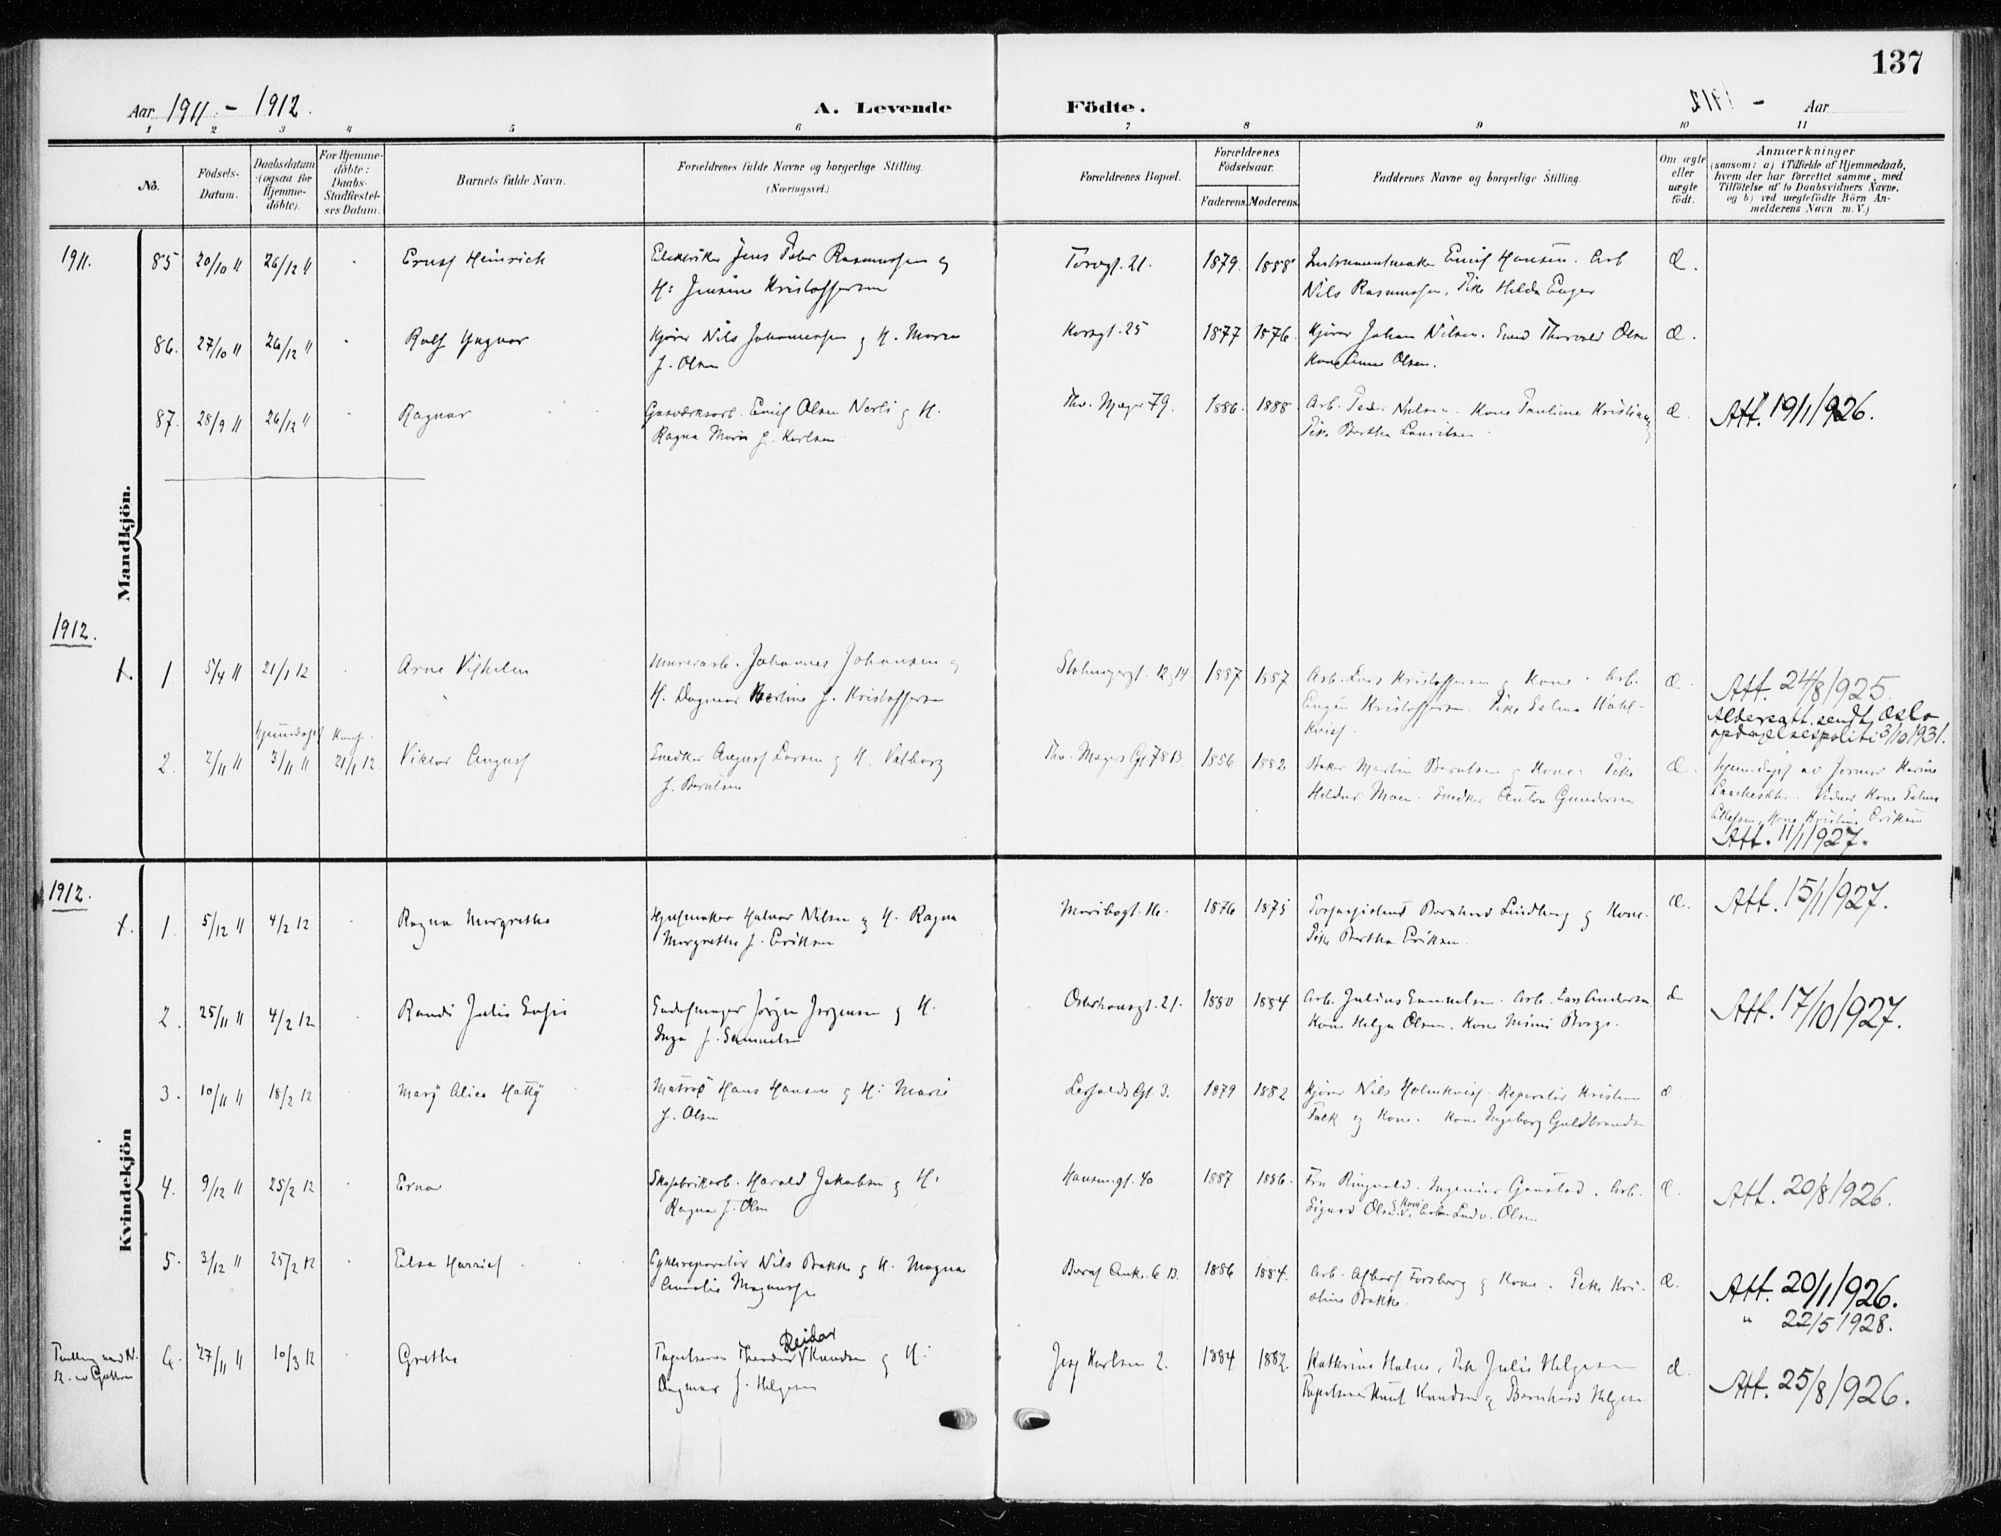 137
Aar 1911 - 1912.
A. Levende Födte.
Aar
1 2 3 4 5 6 7 8 9 10 11
No.
Födsels-Datum.
Daabsdatum (ogsaa for Hjemme-döbte).
For Hjemme-döbte: Daabs-Stadfæstel-ses Datum.
Barnets fulde Navn.
Forældrenes fulde Navne og borgerlige Stilling.
(Næringsvei.)
Forældrenes Bopæl.
Forældrenes Födselsaar.
Faderens. Moderens.
Faddernes Navne og borgerlige Stilling.
Om ægte eller uægte födt.
Anmærkninger
(saasom: a) i Tilfælde af Hjemmedaab,
hvem der har forrettet samme, med
Tilföielse af to Daabsvidners Navne.
og b) ved uægtefödte Börn An-
melderens Navn m. V.)
Mandkjön.
1911. 85 20/10 11 26/12 11 Ernst Heinrich Elektriker Jens Peter Rasmussen og Torvgt. 21. 1879. 1888 Instrumentmaker Emil Hansen. Arb Æ.
H: Jensine Kristoffersen Nils Rasmussen, Pike Hilda Enger
86. 27/10 11 26/12 11 Rolf Yngvar Kjører Nils Johannessen og H. Maren Korsgt. 25 1877 1876. Kjører Johan Nilsen. Svend Thorvald Olsen Æ.
f. Olsen Kone Anna Olsen.
87. 28/9 11 26/12 11 Ragnar Gasværksarb. Emil Olsen Nerli og H. Thv. Meyer 79. 1886. 1888 Arb. Peder Nilsen. Kone Pauline Kristiansen Æ. Att. 19/1/926.
Ragna Marie f. Karlsen Pike Bertha Lauritsen.
1912.
1. 5/4 11 21/1 12 Arne Vilhelm Murerarb. Johannes Johansen og 12 og 14 1887 1887 Arb. Lars Kristoffersen og Kone. Arb. Æ. Att. 24/8/925.
H. Dagmar f. Kristoffersen Eugen Kristoffersen. Pike Selma Wahl-
kvist Aldersatt. sendt Oslo
opdagelsespoliti 3/10/931.
Hjemmedøpt Konf.
2. 2/11 11 3/11 11 21/1 12. Viktor August Snedker August Larsen og H. Valborg Thv. Meyers Gt 78 B. 1856 1882 Baker Martin Berntsen og Kone. Pike Æ. Hjemmedøpt av Jormor Karine
f. Berntsen Moen. Snedker Anton Gundersen Vidner Kone Selma
Kone Kristine Eriksen
Att. 11/1/927.
Kvindekjön
1912.
1. 5/12 11 4/2 12 Ragna Margrethe Halvor Nilsen og H. Ragna Maribogt. 16. 1876 1875 Bernhard Lindberg og Kone. Æ. Att. 15/1/927.
Margrethe f. Eriksen Pike Bertha Eriksen.
2. 25/11 11 4/2 12 Randi Julie Sofie Jørgen Jørgensen og H. Osterhausgt. 21. 1880 1884 Arb. Julius Samuelsen. Arb. Lars Andersen Æ Att. 17/10/927.
Inga f. Samuelsen Kone Helga Olsen. Kone Mimi Borge.
3. 10/11 11 18/2 12 Mary Alice Hatty Matros Hans Hansen og H: Marie 3. 1879 1882 Kjører Nils Holmkvist. Reparatør Kristian Æ.
f. Olsen Falk og Kone. Kone Ingeborg Guldbrandsen
4. 9/12 11 25/2 12 Erna Skofabrikarb. Harald Jakobsen og H: Hausmgt. 40 1887 1886. Fru Ringvold. Ingeniør Arb. Æ. Att. 20/8/926.
Ragna f. Olsen Sigurd Olsen. Kone Ludv. Olsen
5. 3/12 11 25/2 12 Elsa Harriet Cykkelreparatør Nils Bakke og H. Magna 6 B. 1886 1884. Arb. Forsberg og Kone. Pike Kri- Æ. Att. 20/1/926.
Amalie Magnussen stine Bakke. " 22/5/1928.
6. 27/11 11 10/3 12 Grethe Tapetserer Theodor Reidar Knudsen og H: Karlsen 2. 1884 1882. Kathrine Holm, Pike Julie Helgesen Æ. Att. 25/8/926.
Dagmar f. Helgesen Tapetserer Knut Knudsen og Bernhard Helgesen